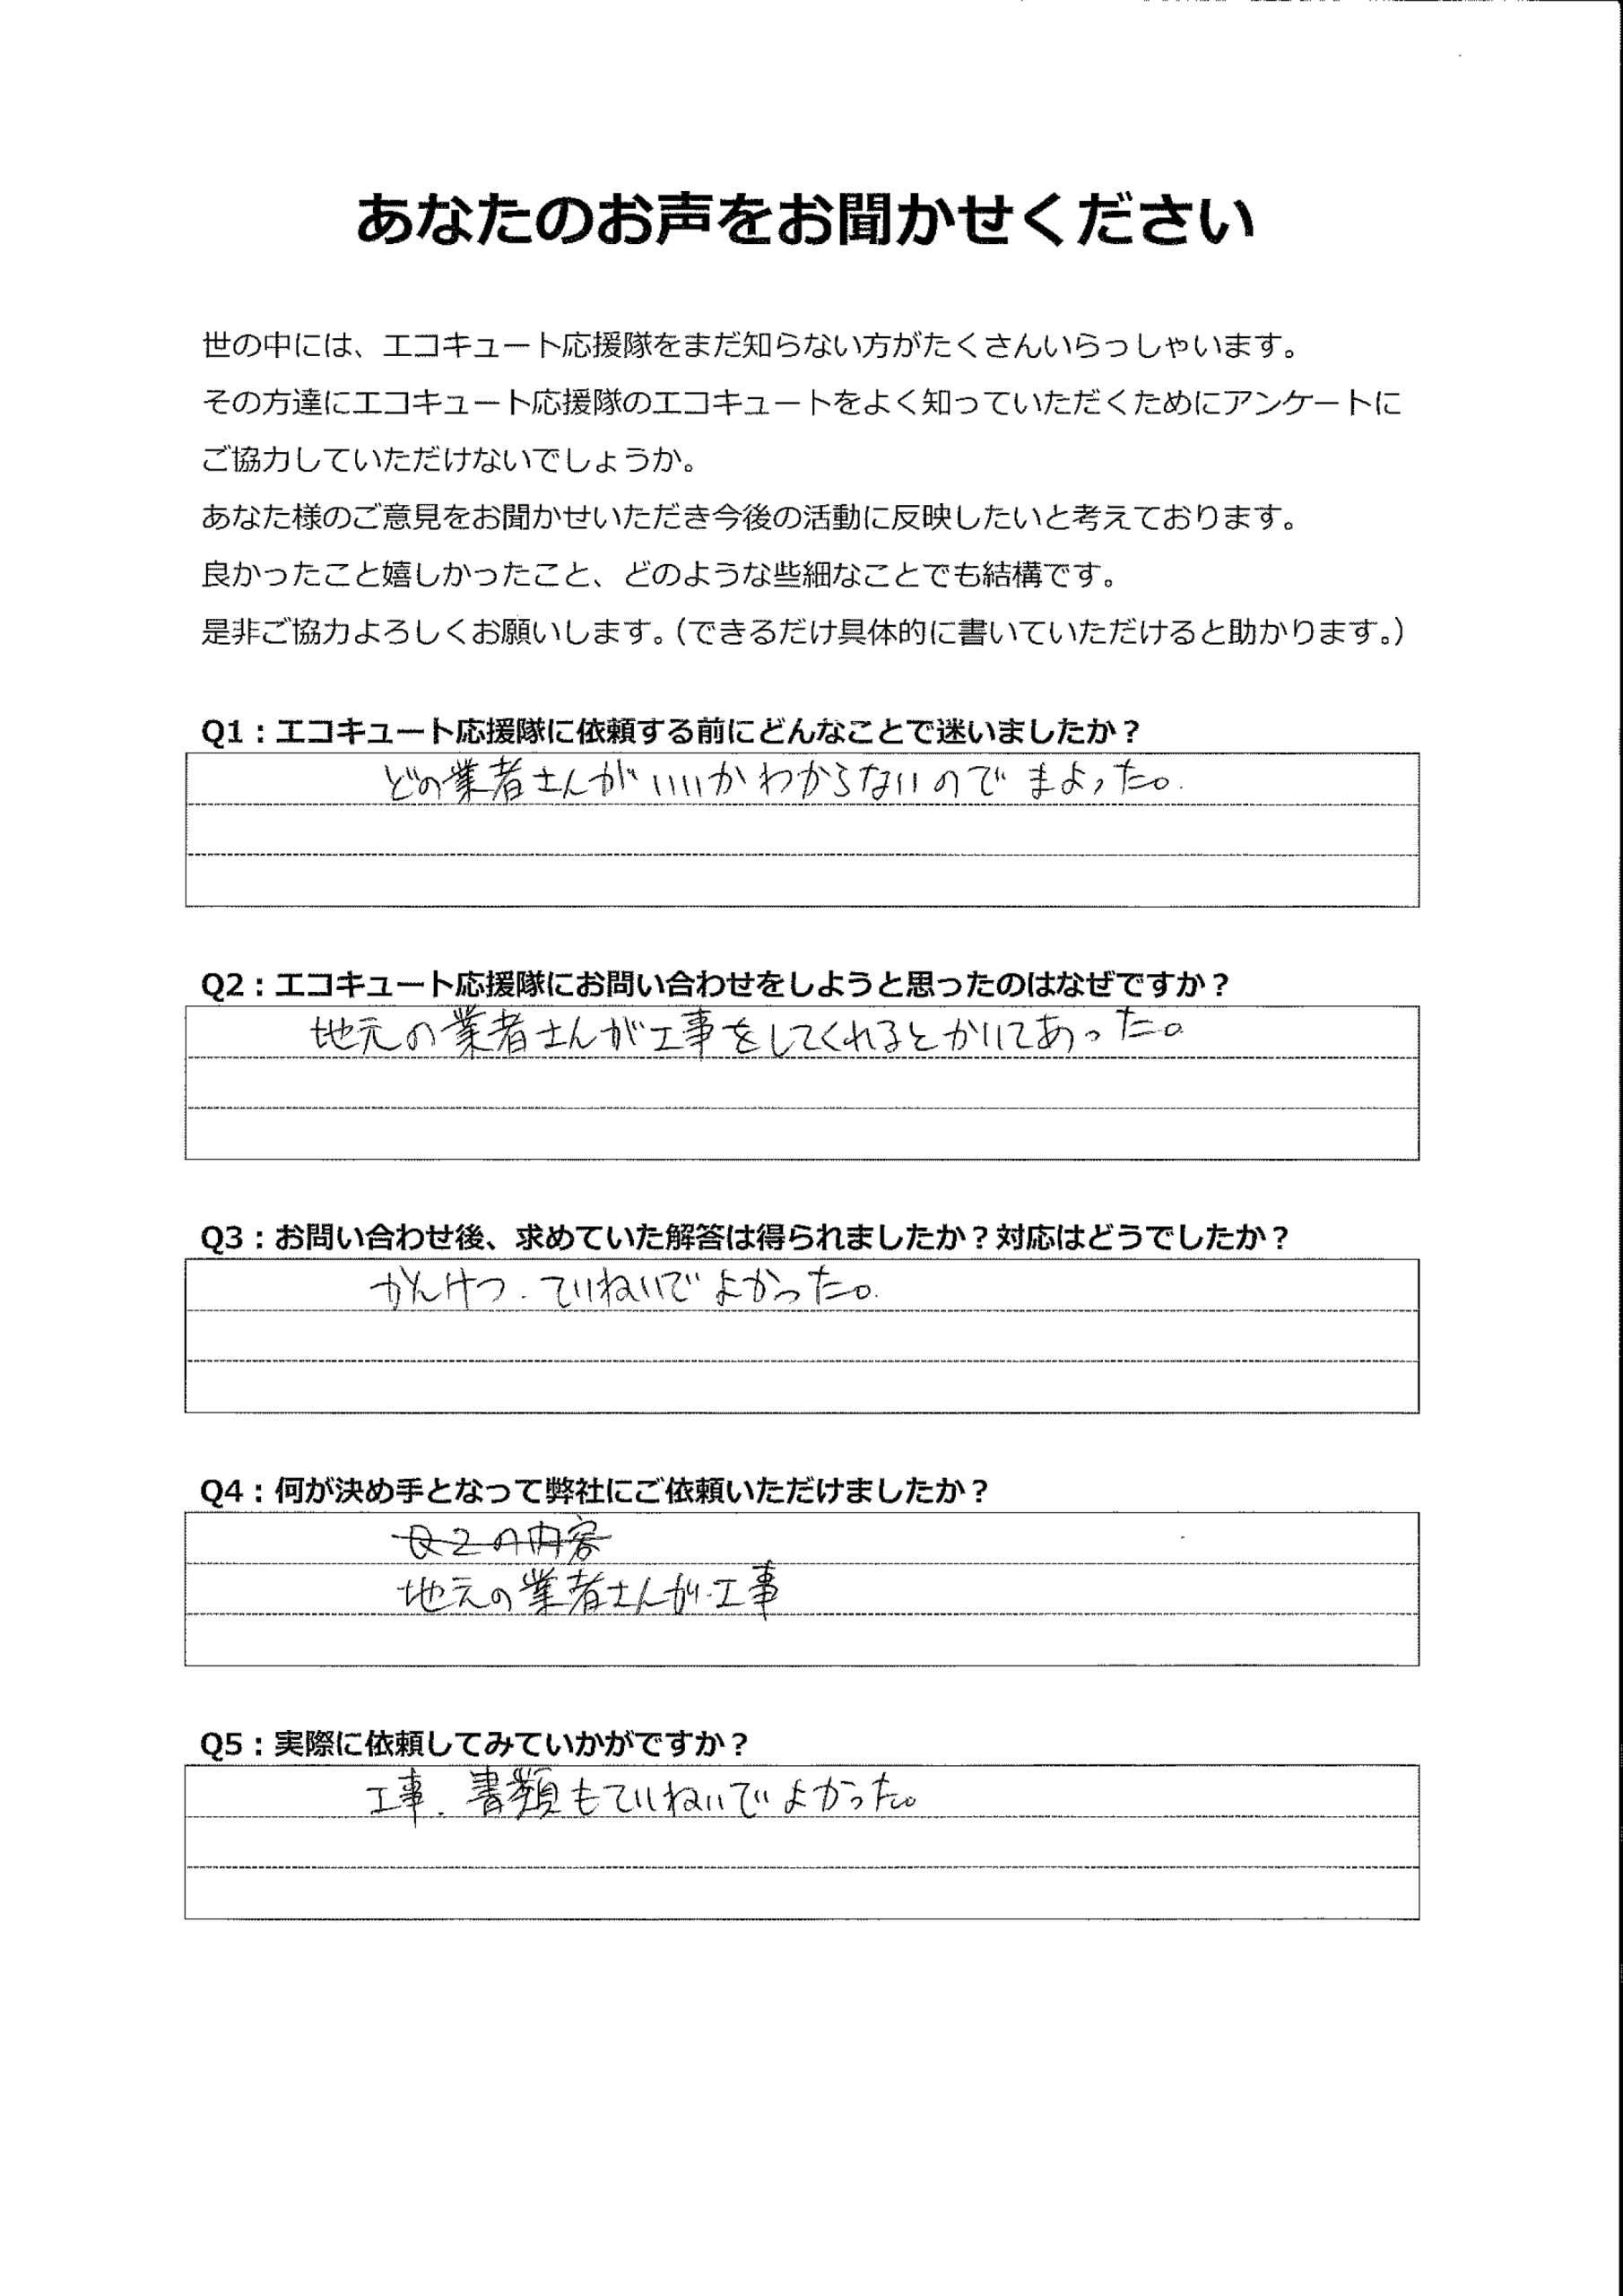 あなたのお声をお聞かせください
世の中には、エコキュート応援隊をまだ知らない方がたくさんいらっしゃいます。
その方達にエコキュート応援隊のエコキュートをよく知っていただくためにアンケートに
ご協力していただけないでしょうか。
あなた様のご意見をお聞かせいただき今後の活動に反映したいと考えております。
良かったこと嬉しかったこと、どのような些細なことでも結構です。
是非ご協力よろしくお願いします。（できるだけ具体的に書いていただけると助かります。）
Q1：エコキュート応援隊に依頼する前にどんなことで迷いましたか？
どの業者さんがいいかわからないのでまよった。
Q2：エコキュート応援隊にお問い合わせをしようと思ったのはなぜですか？
地元の業者さんが工事をしてくれるとかいてあった。
Q3：お問い合わせ後、求めていた解答は得られましたか？対応はどうでしたか？
かんけつ．ていねいでよかった。
Q4：何が決め手となって弊社にご依頼いただけましたか？
Q2の内容
地元の業者さんが工事
Q5：実際に依頼してみていかがですか？
工事．書類もていねいでよかった。